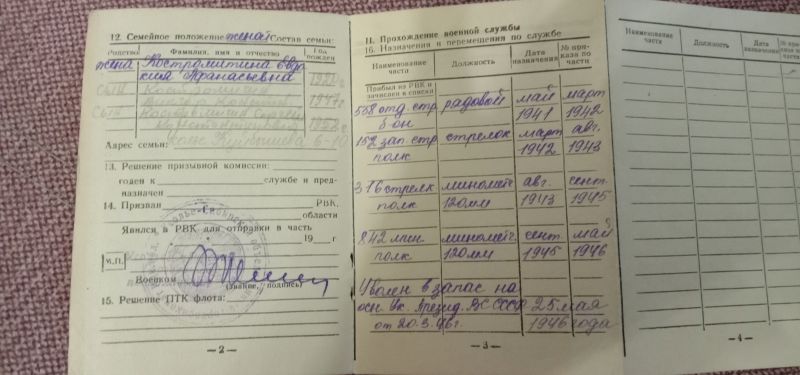 12. Семейное положение женат Состав семьи:
Родство
Фамилия, имя и отчество
Год рожден
жена Костромитина Евдо
кия Афанасьевна
сын
1947г
сын
1952г
Адрес семьи: Куйбышева 6-10
13. Решение призывной комиссии:
годен к службе и пред-
назначен
14. Призван РВК,
области
Явился в РВК для отправки в часть
19 г.
М.П.
Военком
(звание, подпись)
15. Решение ПТК флота:
— 2 —
II. Прохождение военной службы
16. Назначения и перемещения по службе
Наименование части
Должность
Дата назначения
№ приказа по части
Прибыл из РВК и
зачислен в списки
558 отд. стр. рядовой май март
б-он 1941 1942
152 зап. стр. стрелок март авг.
полк 1942 1943
376 стрелк миномет. авг. сент.
полк 120мм 1943 1945
842 миномет. сент. май
полк 120мм 1945 1946
Уволен в запас на
осн. Ук. Презид. ВС СССР 25 мая
от 20.3.46г. 1946 годы
— 3 —
Наименование части
Должность
Дата назначения
— 4 —